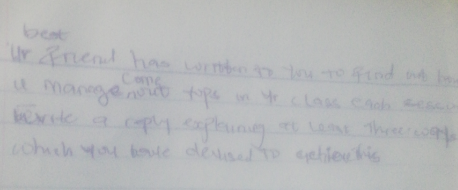 best
Ur friend has written to you to find out how
u manage come out tops in yr class each
write a reply explaining at least three ways
which you have devised to achieve this